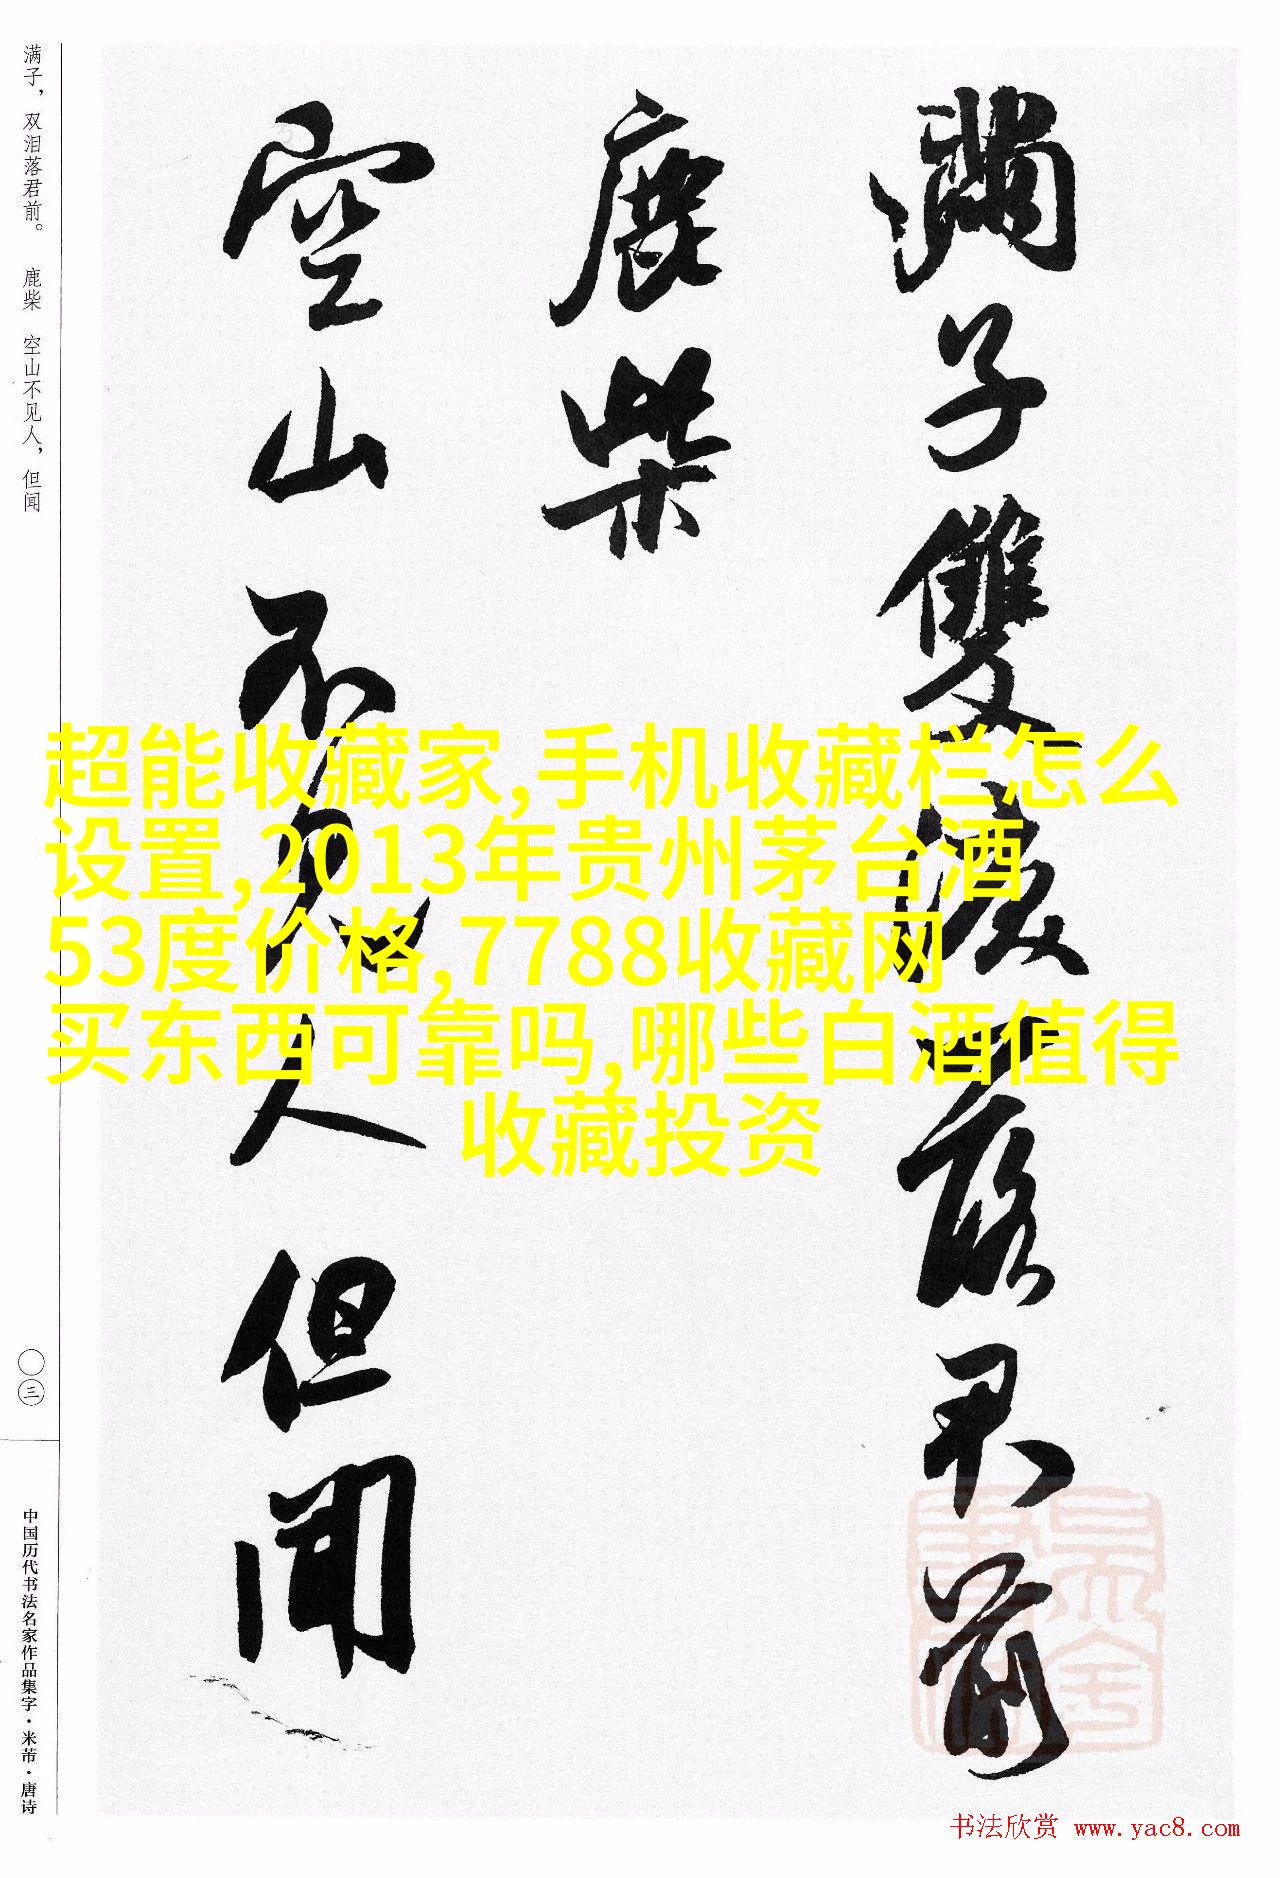 满子，双泪落君前。 鹿柴 空山不见人，但闻
滿子雙淚落君前
鹿柴
空山不見人但聞
超能收藏家,手机收藏栏怎么
设置,2013年贵州茅台酒
53度价格,7788收藏网
买东西可靠吗,哪些白酒值得
收藏投资
〇三
中国历代书法名家作品集字·米芾·唐诗
书法欣赏 www.yac8.com